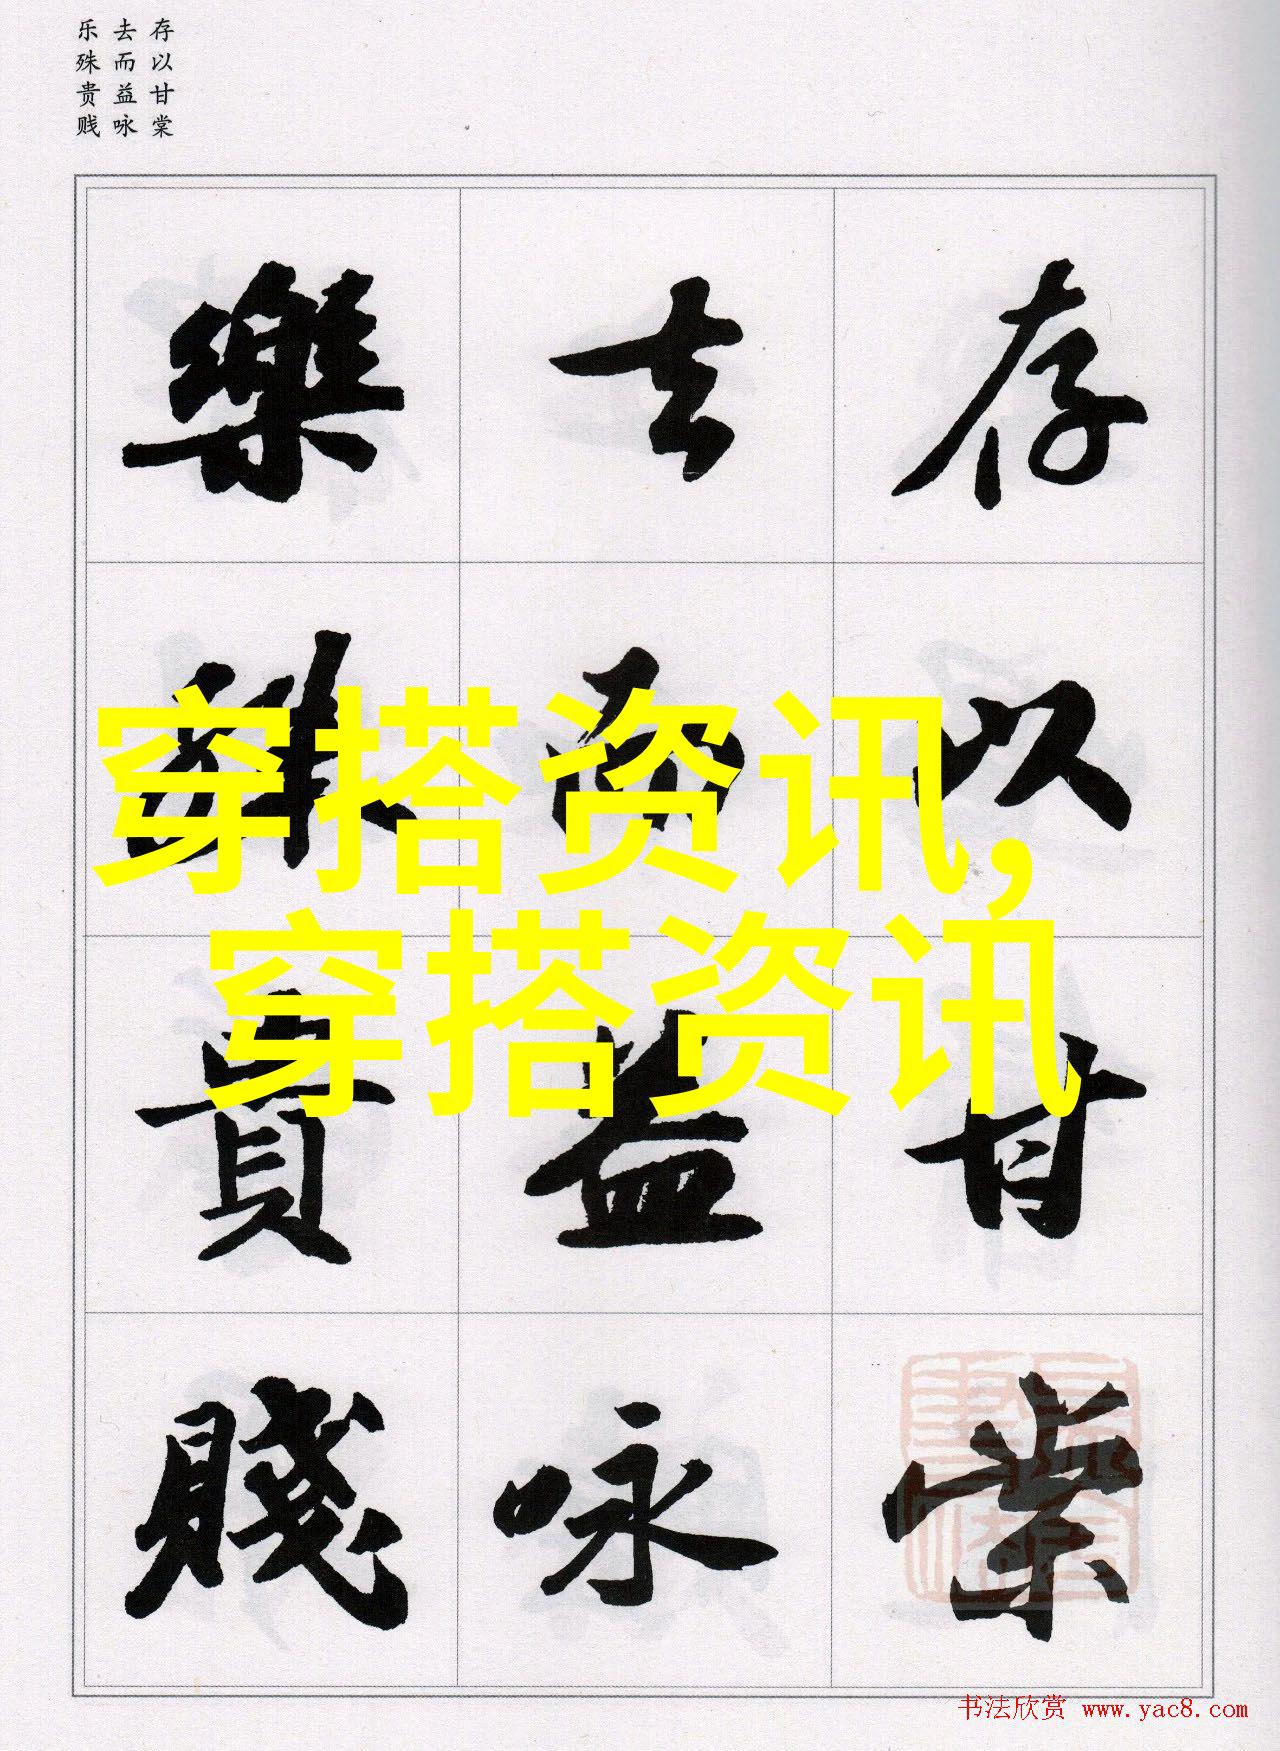 存以甘棠
去而益咏
乐殊贵贱
存以甘棠
去而益咏
樂殊貴賤
穿搭资讯,
穿搭资讯
书法欣赏 www.yac8.com